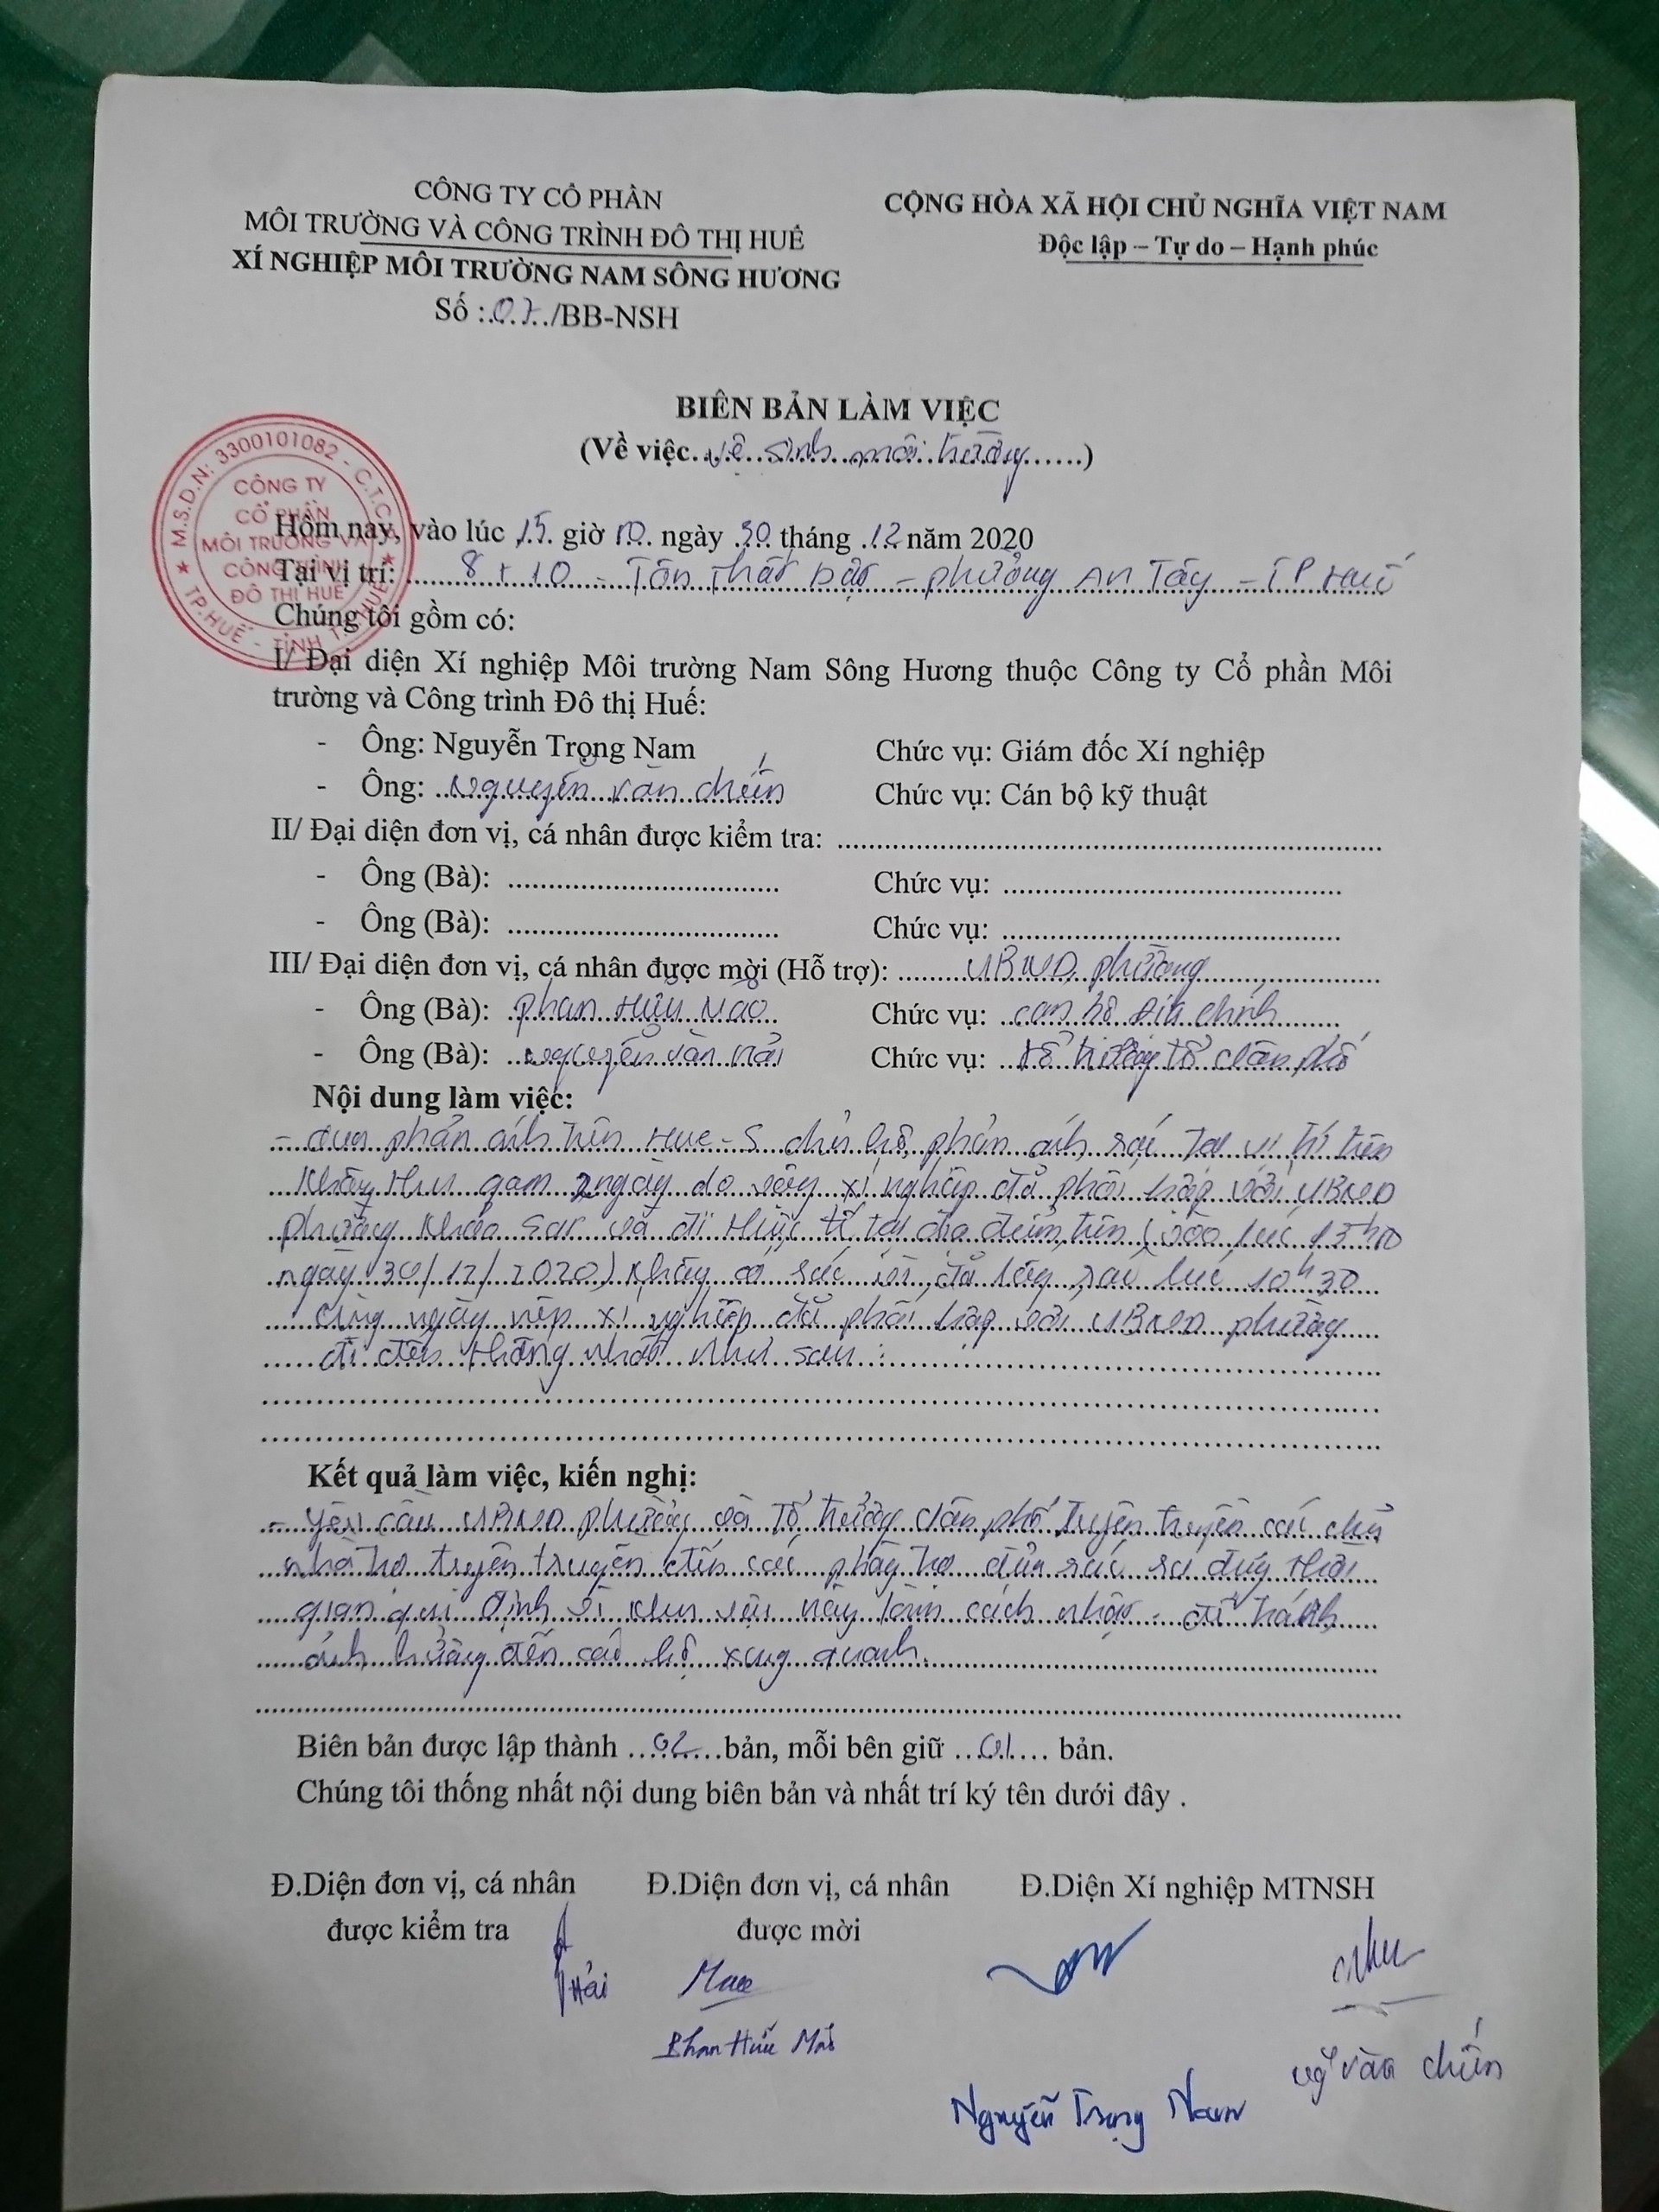 CÔNG TY CỔ PHẦN
MÔI TRƯỜNG VÀ CÔNG TRÌNH ĐÔ THỊ HUẾ
XÍ NGHIỆP MÔI TRƯỜNG NAM SÔNG HƯƠNG
Số :.07./BB-NSH
CỘNG HÒA XÃ HỘI CHỦ NGHĨA VIỆT NAM
Độc lập – Tự do – Hạnh phúc
BIÊN BẢN LÀM VIỆC
(Về việc vệ sinh môi trường)
M.S.D.N: 3300101082 - C.T.C.P
CÔNG TY
CỔ PHẦN
MÔI TRƯỜNG VÀ
CÔNG TRÌNH
ĐÔ THỊ HUẾ
TP.HUẾ - TỈNH T.T.HUẾ
Hôm nay, vào lúc 15 giờ 00 ngày 30 tháng 12 năm 2020
Tại vị trí: 8 + 10 - Tôn Thất - phường An Tây - TP Huế
Chúng tôi gồm có:
I/ Đại diện Xí nghiệp Môi trường Nam Sông Hương thuộc Công ty Cổ phần Môi
trường và Công trình Đô thị Huế:
- Ông: Nguyễn Trọng Nam Chức vụ: Giám đốc Xí nghiệp
- Ông: Nguyễn văn chiến Chức vụ: Cán bộ kỹ thuật
II/ Đại diện đơn vị, cá nhân được kiểm tra:
- Ông (Bà): Chức vụ:
- Ông (Bà): Chức vụ:
III/ Đại diện đơn vị, cá nhân được mời (Hỗ trợ): UBND phường
- Ông (Bà): Phan Hữu Chức vụ: cán bộ địa chính
- Ông (Bà): Nguyễn văn Hải Chức vụ: tổ trưởng tổ dân phố
Nội dung làm việc:
- qua phản ánh trên Hue-S chủ hộ phản ánh rác tại vị trí trên
không thu gom 2 ngày do vậy xí nghiệp đã phối hợp với UBND
phường khảo sát và đi thực tế tại địa điểm trên (vào lúc
ngày 30/12/2020) không có rác lúc 10h30
cùng ngày nên xí nghiệp đã phối hợp với UBND phường
đi đến thống nhất như sau :
Kết quả làm việc, kiến nghị:
- yêu cầu UBND phường và Tổ trưởng dân phố tuyên truyền các chủ
nhà trọ tuyên truyền đến các phòng trọ rác đúng thời
gian qui định vì khu vực này - để tránh
ảnh hưởng đến các hộ xung quanh.
Biên bản được lập thành 02 bản, mỗi bên giữ 01 bản.
Chúng tôi thống nhất nội dung biên bản và nhất trí ký tên dưới đây .
Đ.Diện đơn vị, cá nhân Đ.Diện đơn vị, cá nhân Đ.Diện Xí nghiệp MTNSH
được kiểm tra được mời
Hải
Phan Hữu
Nguyễn Trọng Nam
văn chiến